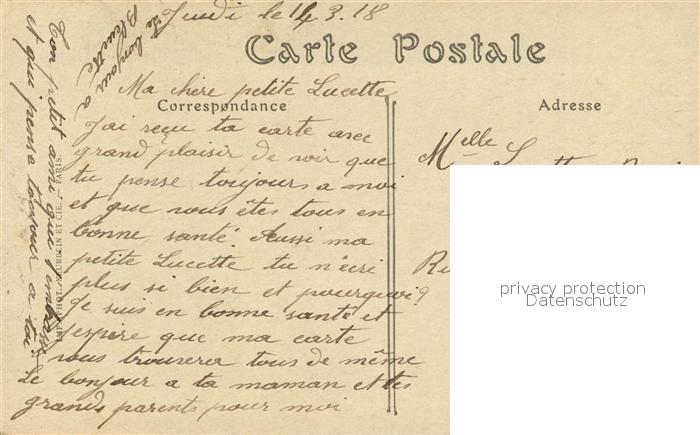 Jeudi le 14.3.18
Carte Postale
Correspondance
Adresse
Ma chère petite Lucette
J'ai reçu ta carte avec
grand plaisir de voir que
tu pense toujours a moi
et que vous êtes tous en
bonne santé. Aussi ma
petite Lucette tu n'écri
plus si bien et pourquoi?
Je suis en bonne santé et
j'espère que ma carte
vous trouvera tous de même
Le bonjour a ta maman et tes
grands parents pour moi
Ton petit ami qui t'embrasse
et qui pense toujour a toi.
Le bonjour
a
Blanette
Melle
privacy protection
Datenschutz